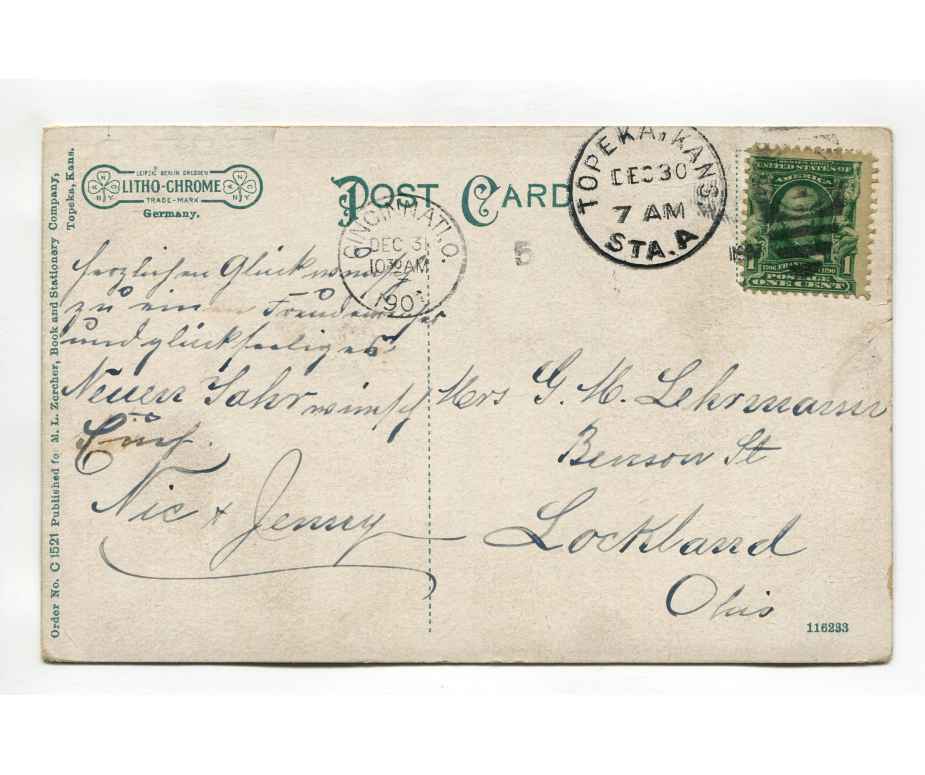 Order No. C 1521 Published for M. L. Zercher, Book and Stationary Company,
Topeka, Kans.
LEIPZIG BERLIN DRESDEN
LITHO-CHROME
TRADE-MARK
Germany.
POST CARD
TOPEKA, KANS.
DEC 30
7 AM
STA. A
CINCINNATI, O.
DEC 31
10 30 AM
190
5
UNITED STATES OF
AMERICA
1 1
POSTAGE
ONE CENT
herzlichen Glückwunsch
zu ein
und glückseeliges
Neuen Jahr wünscht
Euch.
Nic + Jenny
Mrs G. M. Lehrmann
Benson St
Lockland
Ohio
116233